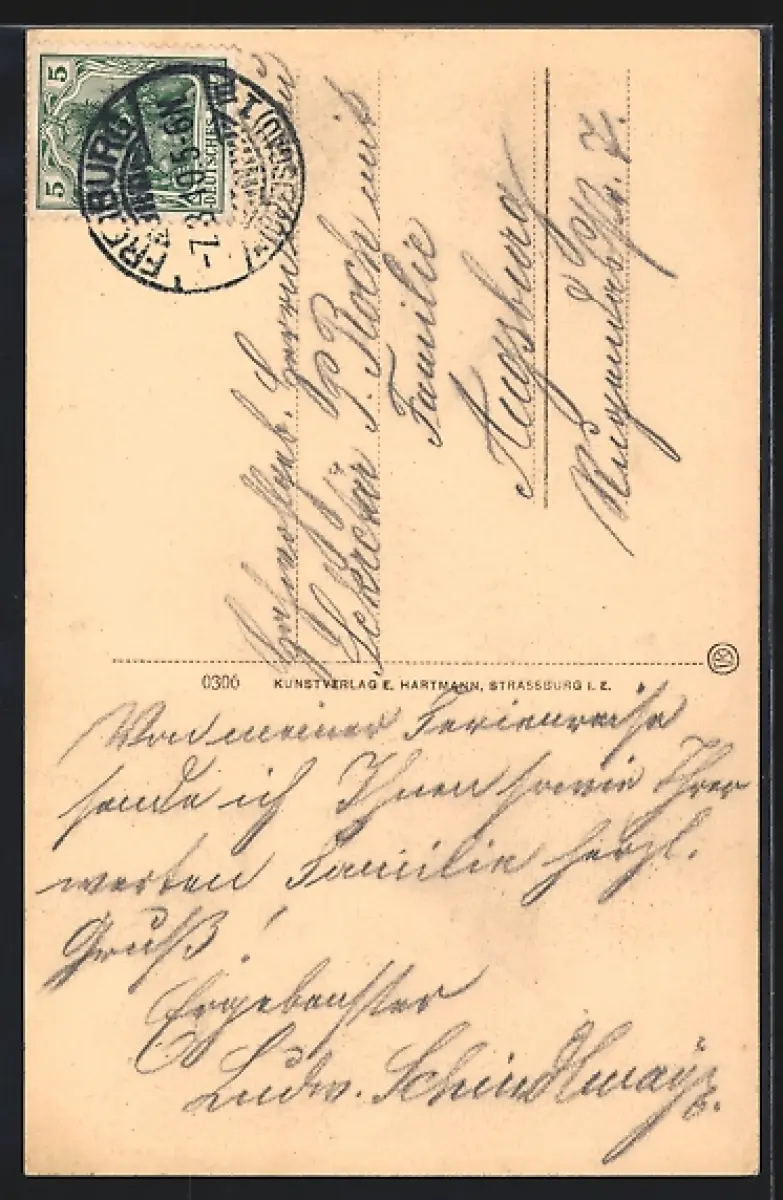 5 5
DEUTSCHES
FREIBURG
-7.8.10.5-6N
(BREISGAU)
Hochwohlgeb. Herrn
Sekretär P. Koch mit
Familie
Augsburg
0306 KUNSTVERLAG E. HARTMANN, STRASSBURG I. E.
Von meiner Ferienreise
sende ich Ihnen sowie Ihrer
werten Familie herzl.
Gruß!
Ergebenster
Ludw. Schindlmayr.